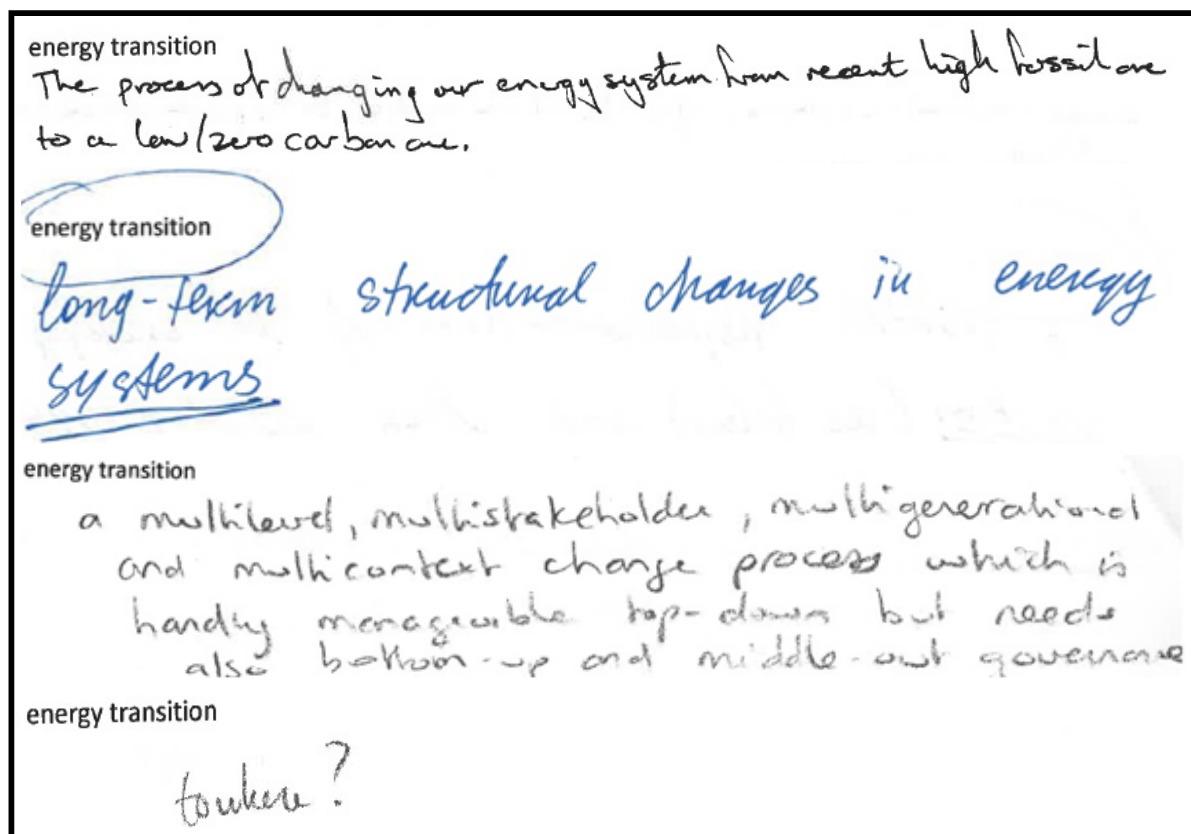 energy transition
The process of changing our energy system from recent high fossil one
to a low/zero carbon one.
energy transition
long-term structural changes in energy
systems
energy transition
a multilevel, multistakeholder, multigenerational
and multicontext change process which is
hardly manageable top-down but needs
also bottom-up and middle-out governance
energy transition
to where?